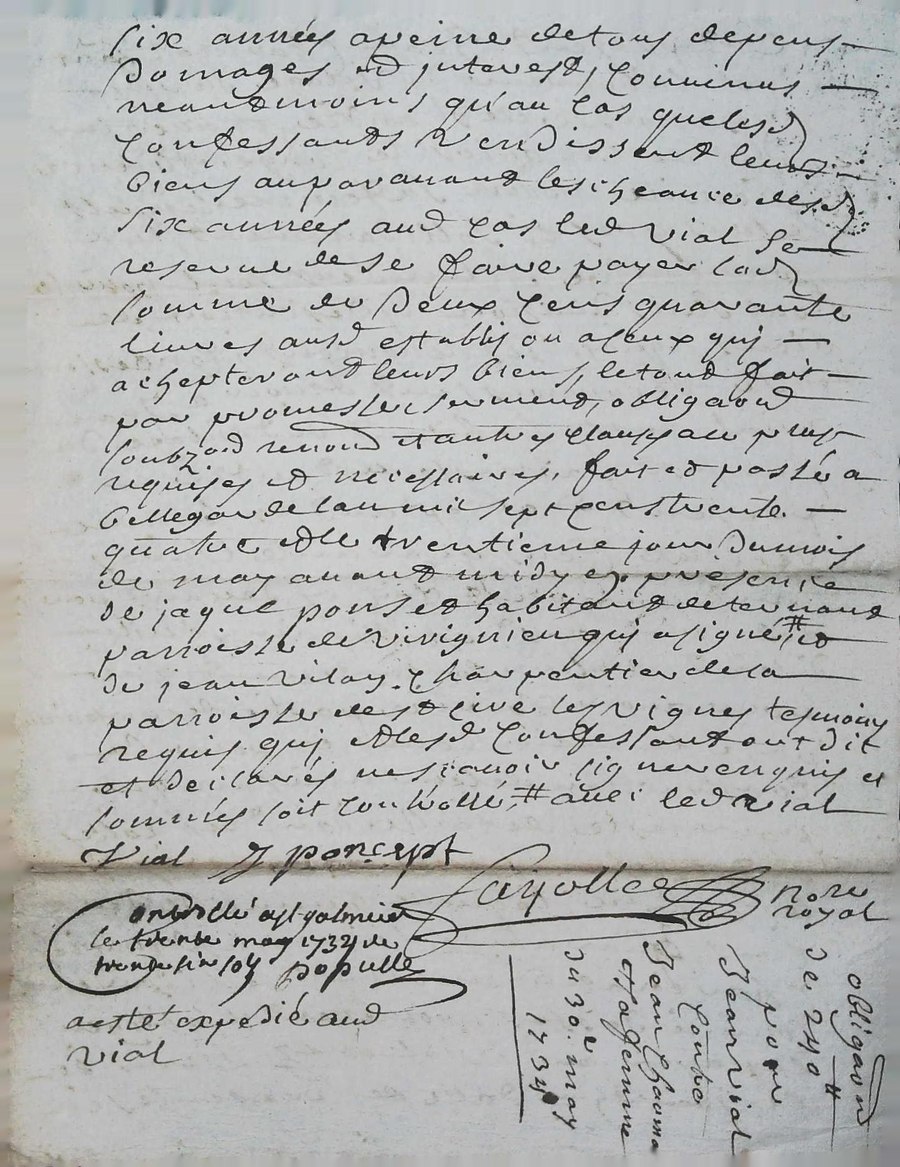 six années a peine de tous depens
domages et interest, convenus
neandmoins qu'au cas que lesd
confessants vendissent leurs
biens auparavant lescheance desd
six années aud cas led vial se
reserve de se faire payer lad
somme de deux cens quarante
livres ausd establis ou a ceux quj
achepteront leurs biens, le tout fait
par promesse serment, obligaon
soubz renon et autres clauses au plus
requises et necessaires, fait et passé a
bellegarde lan mil sept cens trente
quatre et le trentieme jour du mois
de may avant midy en presence
de jaque ponset habitant de
parroisse de virignieu quj a signé # et
de jean vilay charpentier de la
parroisse de st cire les vignes tesmoins
requis quj et lesd confessant ont dit
et declarés ne scavoir signer enquis et
sommés soit controllé, # avec led vial
Vial J poncept
fayolle nore
royal
Controllé a st galmier
le trente may 1734 de
trente six sols populle
a esté expedié aud
vial
obligaon
de 240 #
pour
Jean vial
contre
Jean
et sa femme
du 30e may
1734